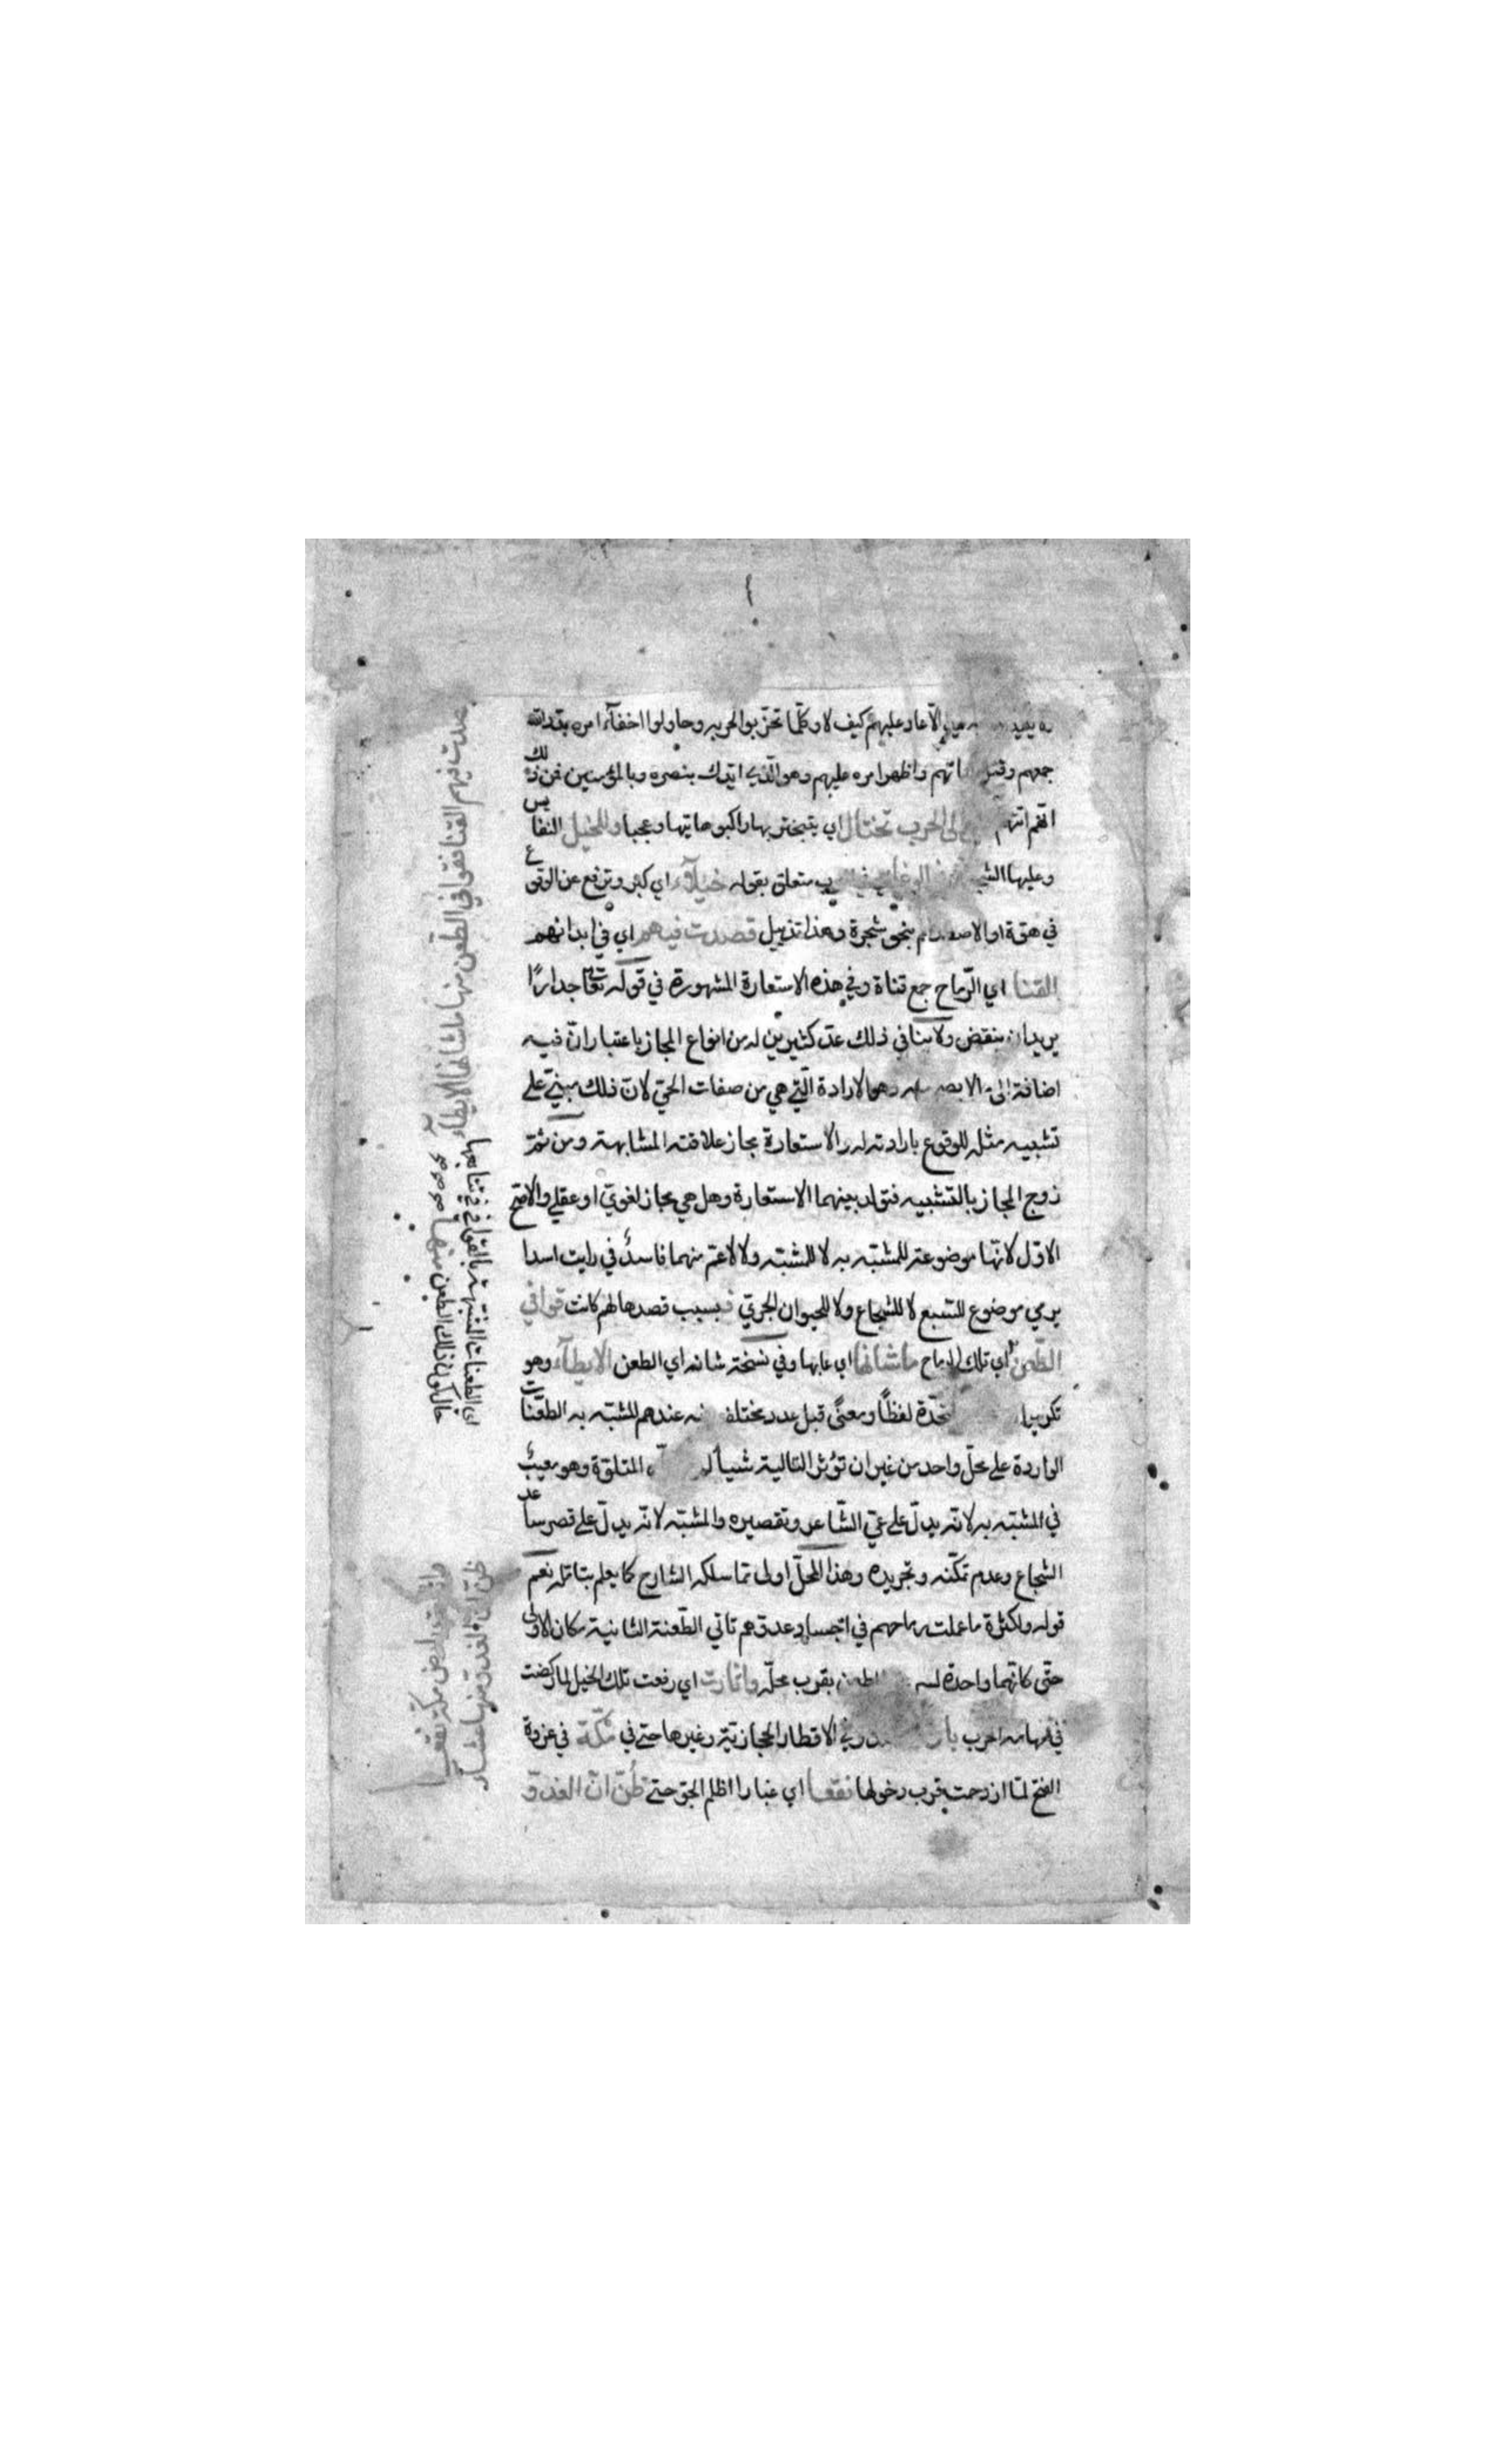 الا عاد عليهم كيف لا وكلّما تحزّبوا لحربه وحاولوا اخفآء امره بدّد الله
جمعهم واظهر امره عليهم وهو الّذي ايّدك بنصره وبالمؤمنين فمن ذلك
انّهم الى الحرب تختال اي يتبختر بها راكبوها تيها وعجبا وللخيل النفايس
وعليها متعلق بقوله خيلآء اي كبر وترفع عن الوقوع
في هوّة او بنحو شجرة وهذا تذييل قصدت فيهم اي في ابدانهم
القنا اي الرّماح جمع قناة وفي هذه الاستعارة المشهورة في قوله تعا جدارًا
يريد ان ينقض ولا ينافي ذلك عدّ كثيرين له من انواع المجاز باعتبار انّ فيه
اضافة الى وهو الارادة الّتي هي من صفات الحيّ لانّ ذلك مبنيّ على
تشبيه مثله للوقوع بارادته له والاستعارة مجاز علاقته المشابهة ومن ثمّ
زوج المجاز بالتشبيه فتولد بينهما الاستعارة وهل هي مجاز لغويّ او عقلي والاصّح
الاوّل لانّها موضوعة للمشبّه به لا للمشبّه ولا لاعمّ منهما فاسدٌ في رايت اسدا
يرمي موضوع للسّبع لا للشجاع ولا للحيوان الجريّ فبسبب قصدها لهم كانت قوافي
الطّعن اي تلك الرماح ما شانها اي عابها وفي نسخة شانه اي الطعن الايطآء وهو
تكرير لفظاً ومعنًى قبل عدد مختلف عندهم المشبّه به الطعنات
الواردة على محلّ واحد من غير ان تؤثر التالية شيأ المتلوّة وهو معيبٌ
في المشبّه به لانّه يدلّ على عيّ الشّاعر وتقصيره والمشبّه لانّه يدلّ على قصر ساعد
الشجاع وعدم تمكّنه وتجريده وهذا المحلّ اولى ممّا سلكه الشارح كما يعلم بتامّله نعم
قوله ولكثرة ما عملت رماحهم في اجساد عدوّهم تاتي الطّعنة الثانية مكان الاولى
حتّى كانّهما واحدة بقرب محلّه واثارت اي رفعت تلك الخيل لما ركضت
الاقطار الحجازيّة وغيرها حتى في مكّة في غزوة
الفتح لمّا ازدحمت بقرب دخولها نقعا اي غبارا اظلم الجوّ حتى ظُنّ انّ الغدوّ
قصدت فيهم القنا فقوافي الطّعن منها ما شانها الايطاء
اي الطعنات المشبّهة بالقوافي في تتابعها
حال كون ذلك الطعن منها
واثارت بارض مكة نقعا
ظن ان الغدوّ منها عشاء